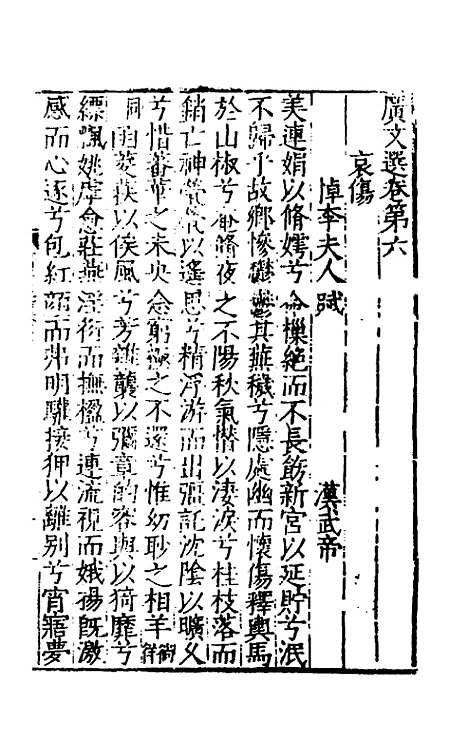 廣文選卷第六
哀傷
悼李夫人賦 漢武帝
美連娟以脩嫮兮命樔絕而不長飾新宮以延貯兮泯
不歸乎故鄉慘鬱鬱其蕪穢兮隱處幽而懷傷釋輿馬
於山椒兮奄脩夜之不陽秋氣憯以淒淚兮桂枝落而
銷亡神煢煢以遙思兮精浮游而出畺託沈陰以曠久
兮惜蕃華之未央念窮極之不還兮惟幼眇之相羊
函荾荴以俟風兮芳雜襲以彌章的容與以猗靡兮
縹飄姚虖愈莊燕淫衍而撫楹兮連流視而娥揚既激
感而心逐兮包紅顏而弗明驩接狎以離別兮宵寤夢